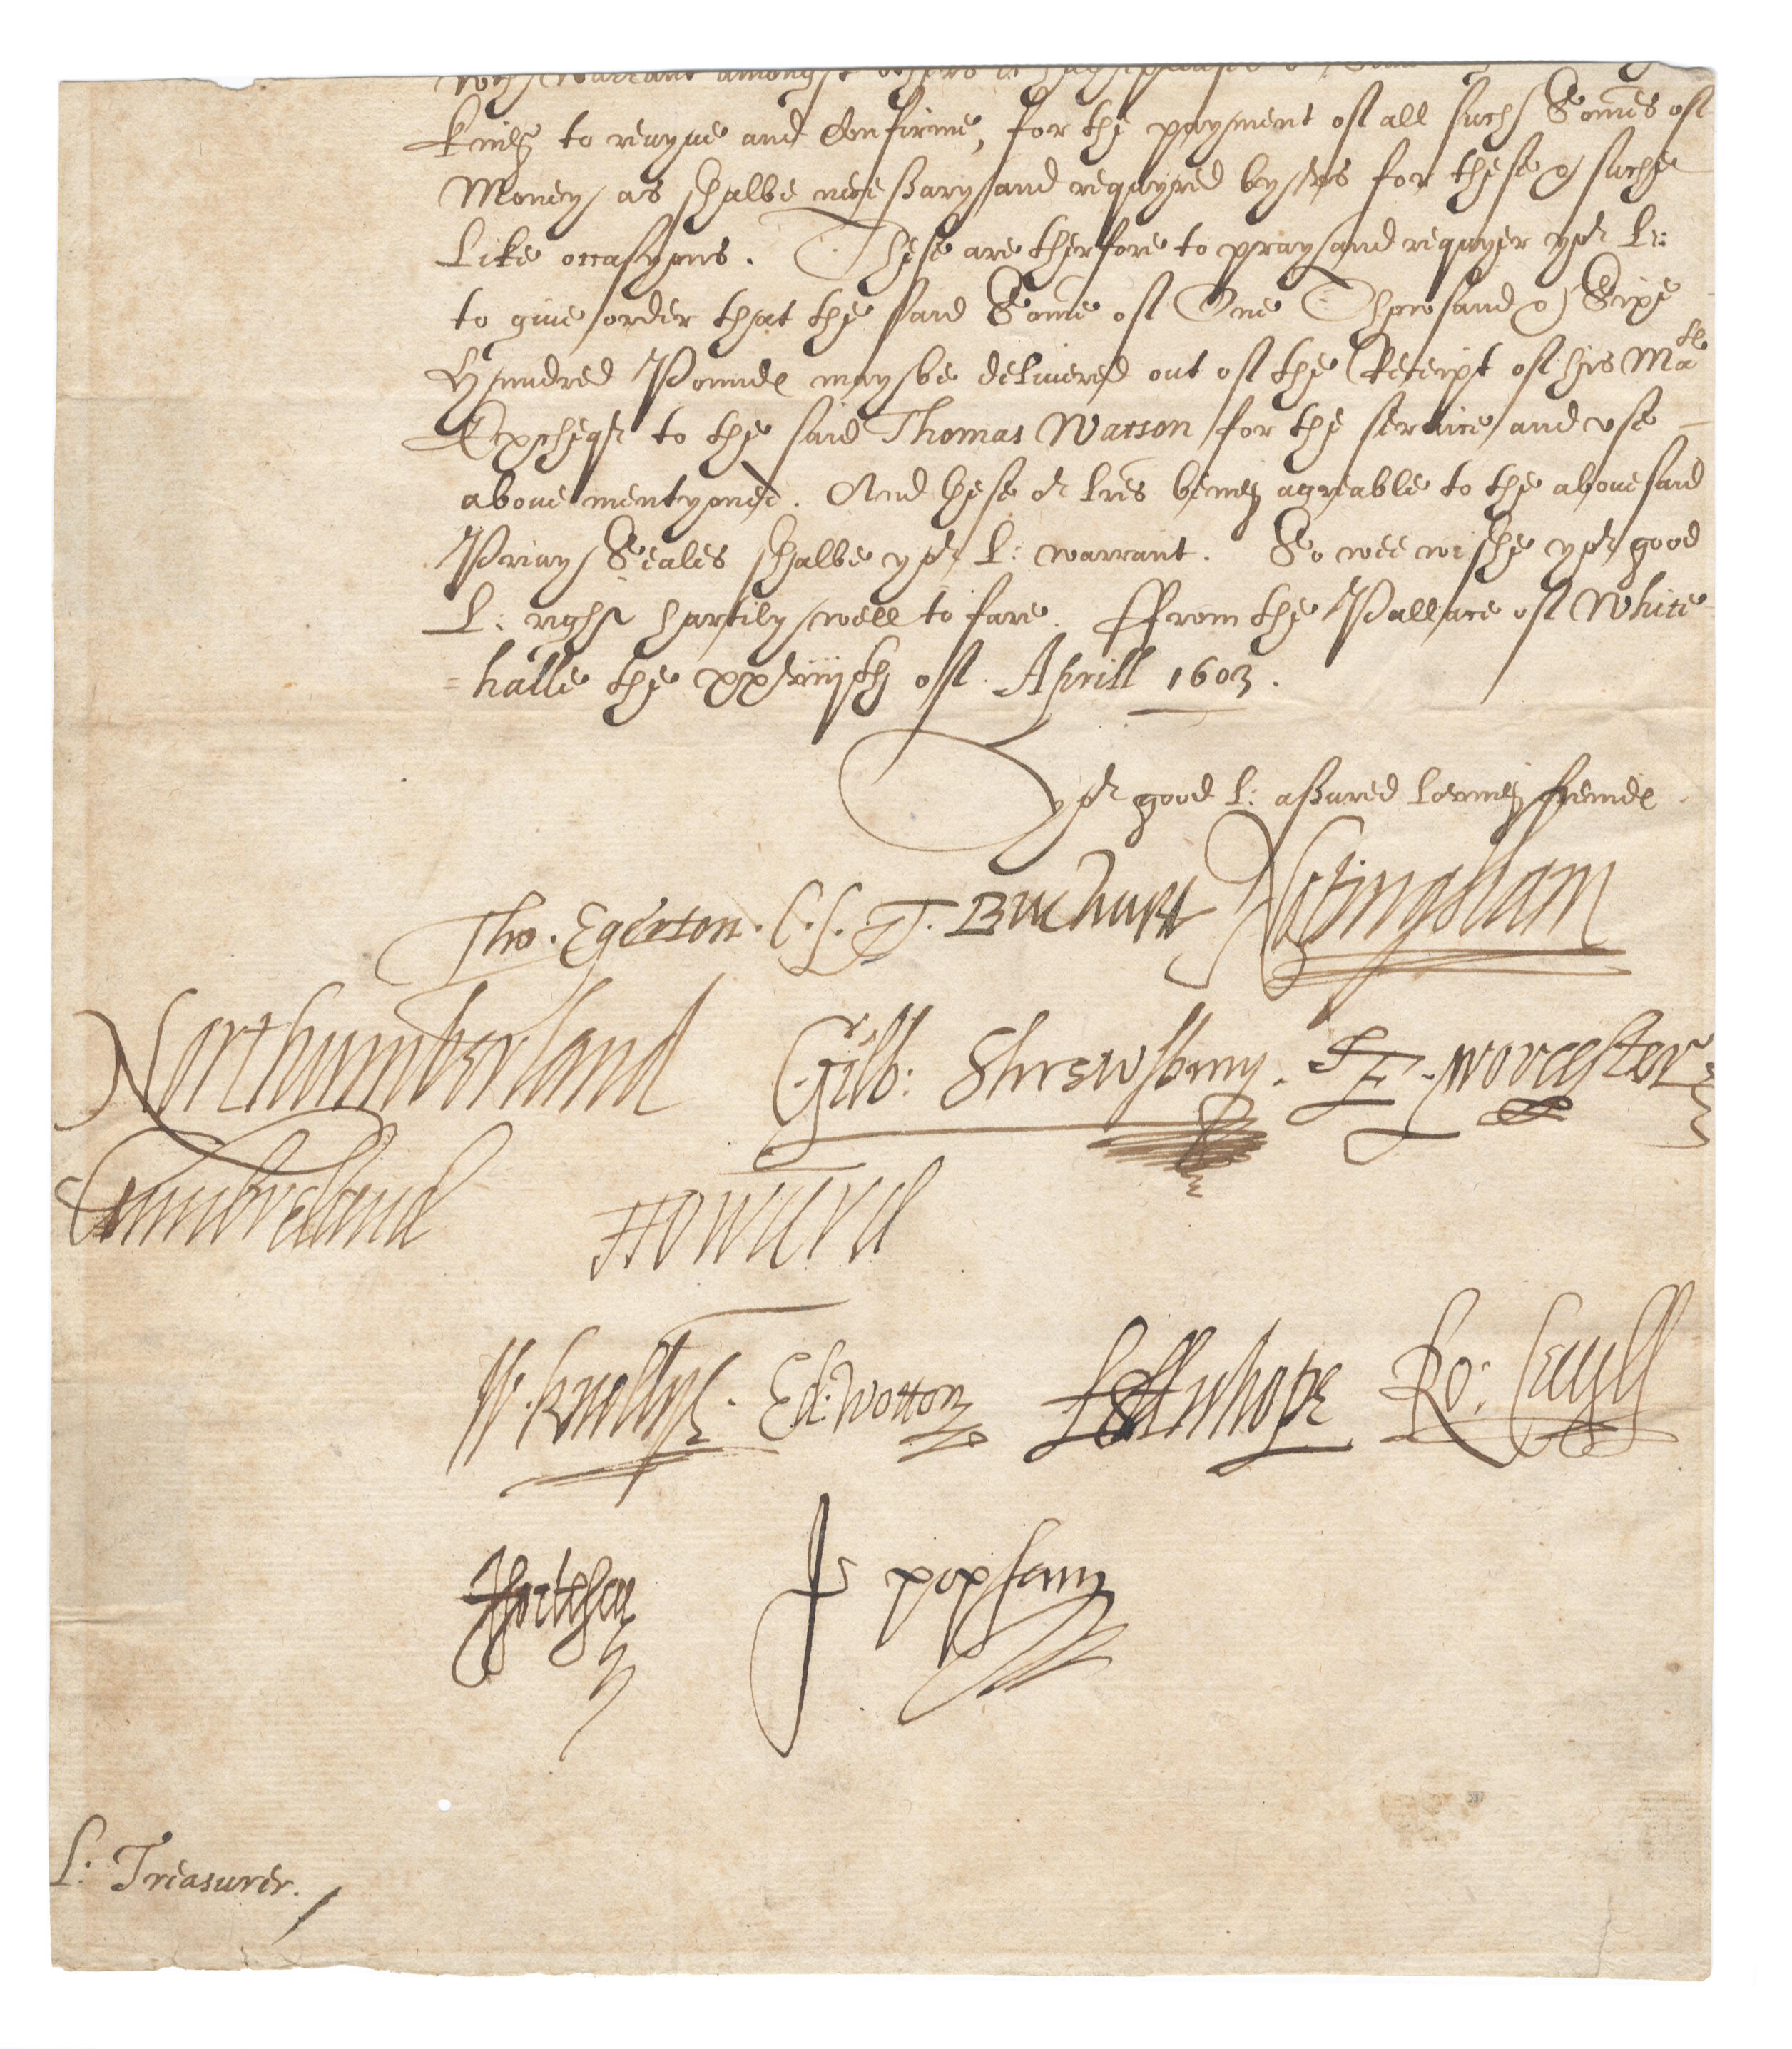 warrant amongst others
Kinge to renyue and Confirme, for the payment of all such Somes of
Money as shalbe necessary and requyred by us for these & suche
like occasyons. These are therfore to pray and requyer yor L:
to giue order that the said Some of One Thowsand & Sixe
Hundred Pounde may be deliuered out of the Receipt of his Ma^ts
Exchequer to the said Thomas Watson for the seruice and use
aboue mentyoned. And these or lres being agreable to the abouesaid
Priuy Seales shalbe yor L: warrant. So wee wishe yor good
L: right hartily well to fare. ffrom the Pallace of White=
=halle the of Aprill 1603.
Yor good L: assured loving frende
Tho. Egerton. C.S. T. Buchurst Notingham
Northumberland Gilb: Shrewsbury. E. Worcester
Cumbreland Howard
W. Knollys. Ed: Wotton L Stanhope Ro: Cecyll
J Fortescu Jo Popham
L: Treasurer.